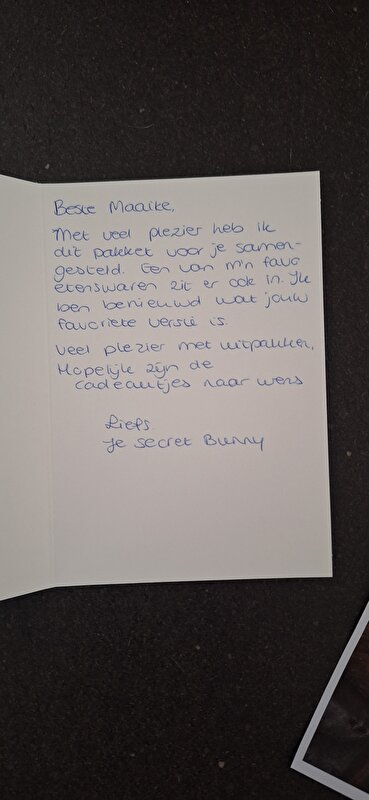 Beste Maaike,
Met veel plezier heb ik
dit pakket voor je samen-
gesteld. Een van m'n favo
etenswaren zit er ook in. Ik
ben benieuwd wat jouw
favoriete versie is.
Veel plezier met uitpakken,
Hopelijk zijn de
cadeautjes naar wens
Liefs
Je secret Bunny